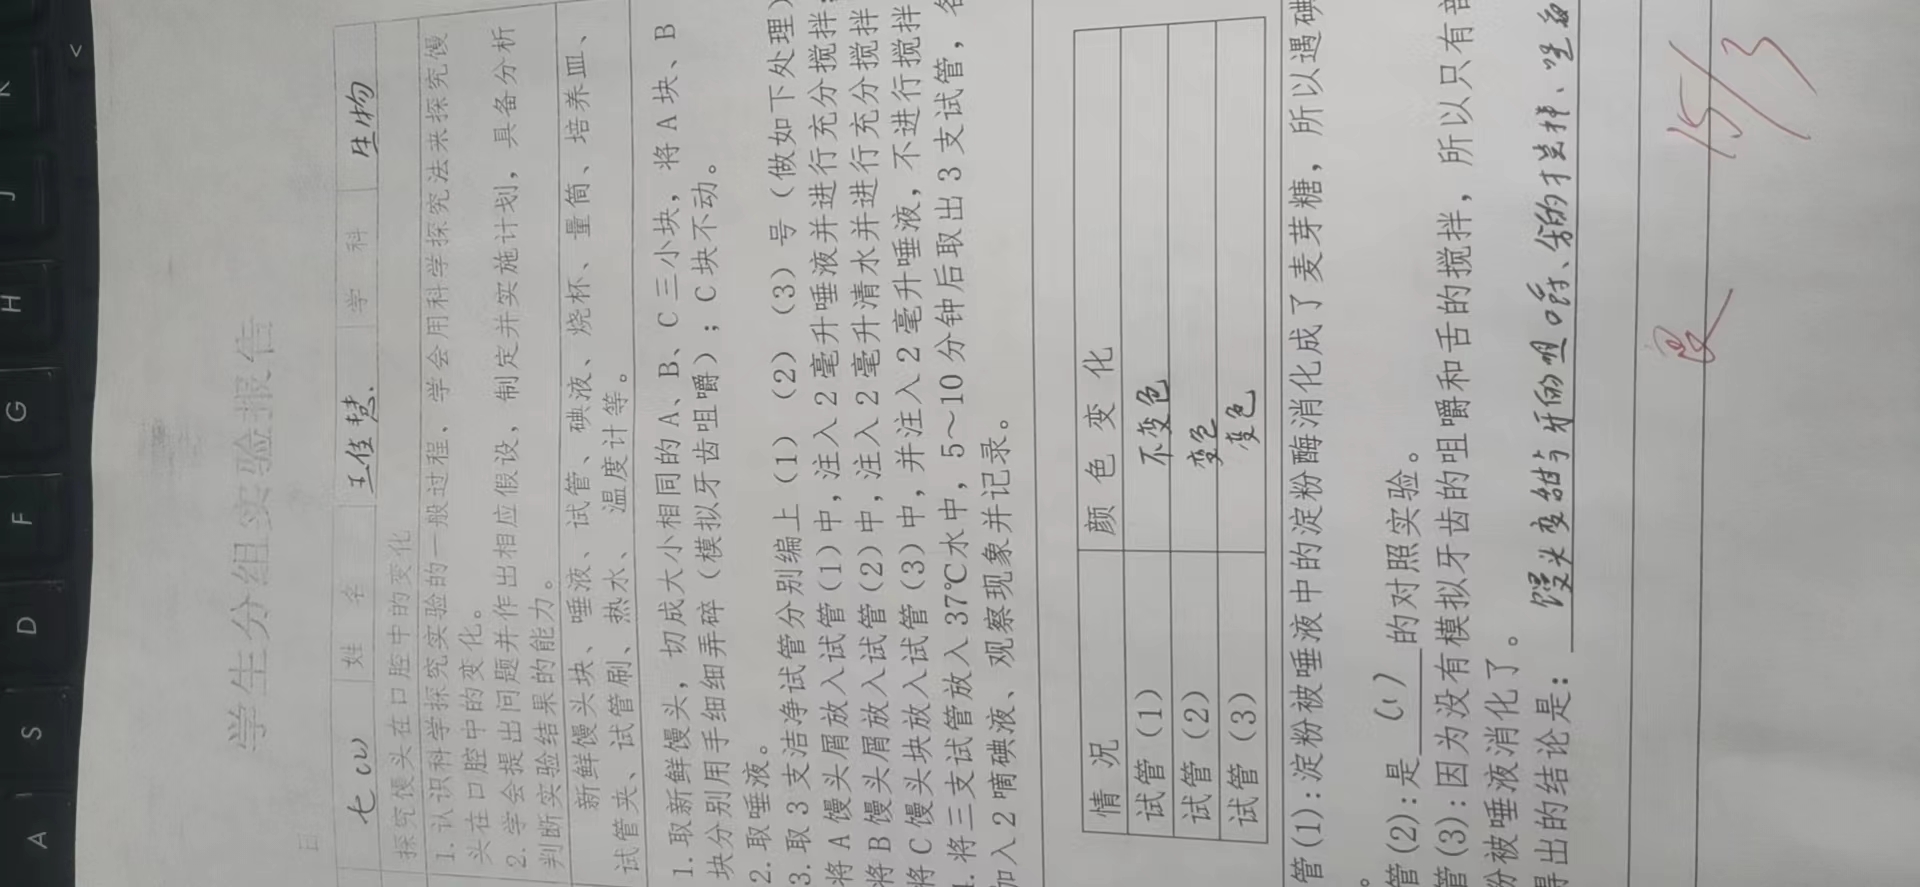 学生分组实验报告
日
七(2) 姓 名 王佳慧 学 科 生物
探究馒头在口腔中的变化
1. 认识科学探究实验的一般过程、学会用科学探究法来探究馒
头在口腔中的变化。
2. 学会提出问题并作出相应假设，制定并实施计划，具备分析
判断实验结果的能力。
新鲜馒头块、唾液、试管、碘液、烧杯、量筒、培养皿、
试管夹、试管刷、热水、温度计等。
1. 取新鲜馒头，切成大小相同的A、B、C三小块，将A块、B
块分别用手细细弄碎（模拟牙齿咀嚼）；C块不动。
2. 取唾液。
3. 取3支洁净试管分别编上（1）（2）（3）号（做如下处理）
将A馒头屑放入试管(1)中,注入2毫升唾液并进行充分搅拌;
将B馒头屑放入试管(2)中,注入2毫升清水并进行充分搅拌
将C馒头块放入试管(3)中,并注入2毫升唾液,不进行搅拌
4. 将三支试管放入37℃水中，5～10分钟后取出3支试管，各
加入2嘀碘液、观察现象并记录。
情 况 颜 色 变 化
试管（1） 不变色
试管（2） 变色
试管（3） 变色
管(1):淀粉被唾液中的淀粉酶消化成了麦芽糖，所以遇碘
。
管(2):是 (1) 的对照实验。
管(3):因为没有模拟牙齿的咀嚼和舌的搅拌，所以只有部
份被唾液消化了。
得出的结论是： 馒头变甜与牙的咀嚼、舌的搅拌、唾液
15/3
A S D F G H J K